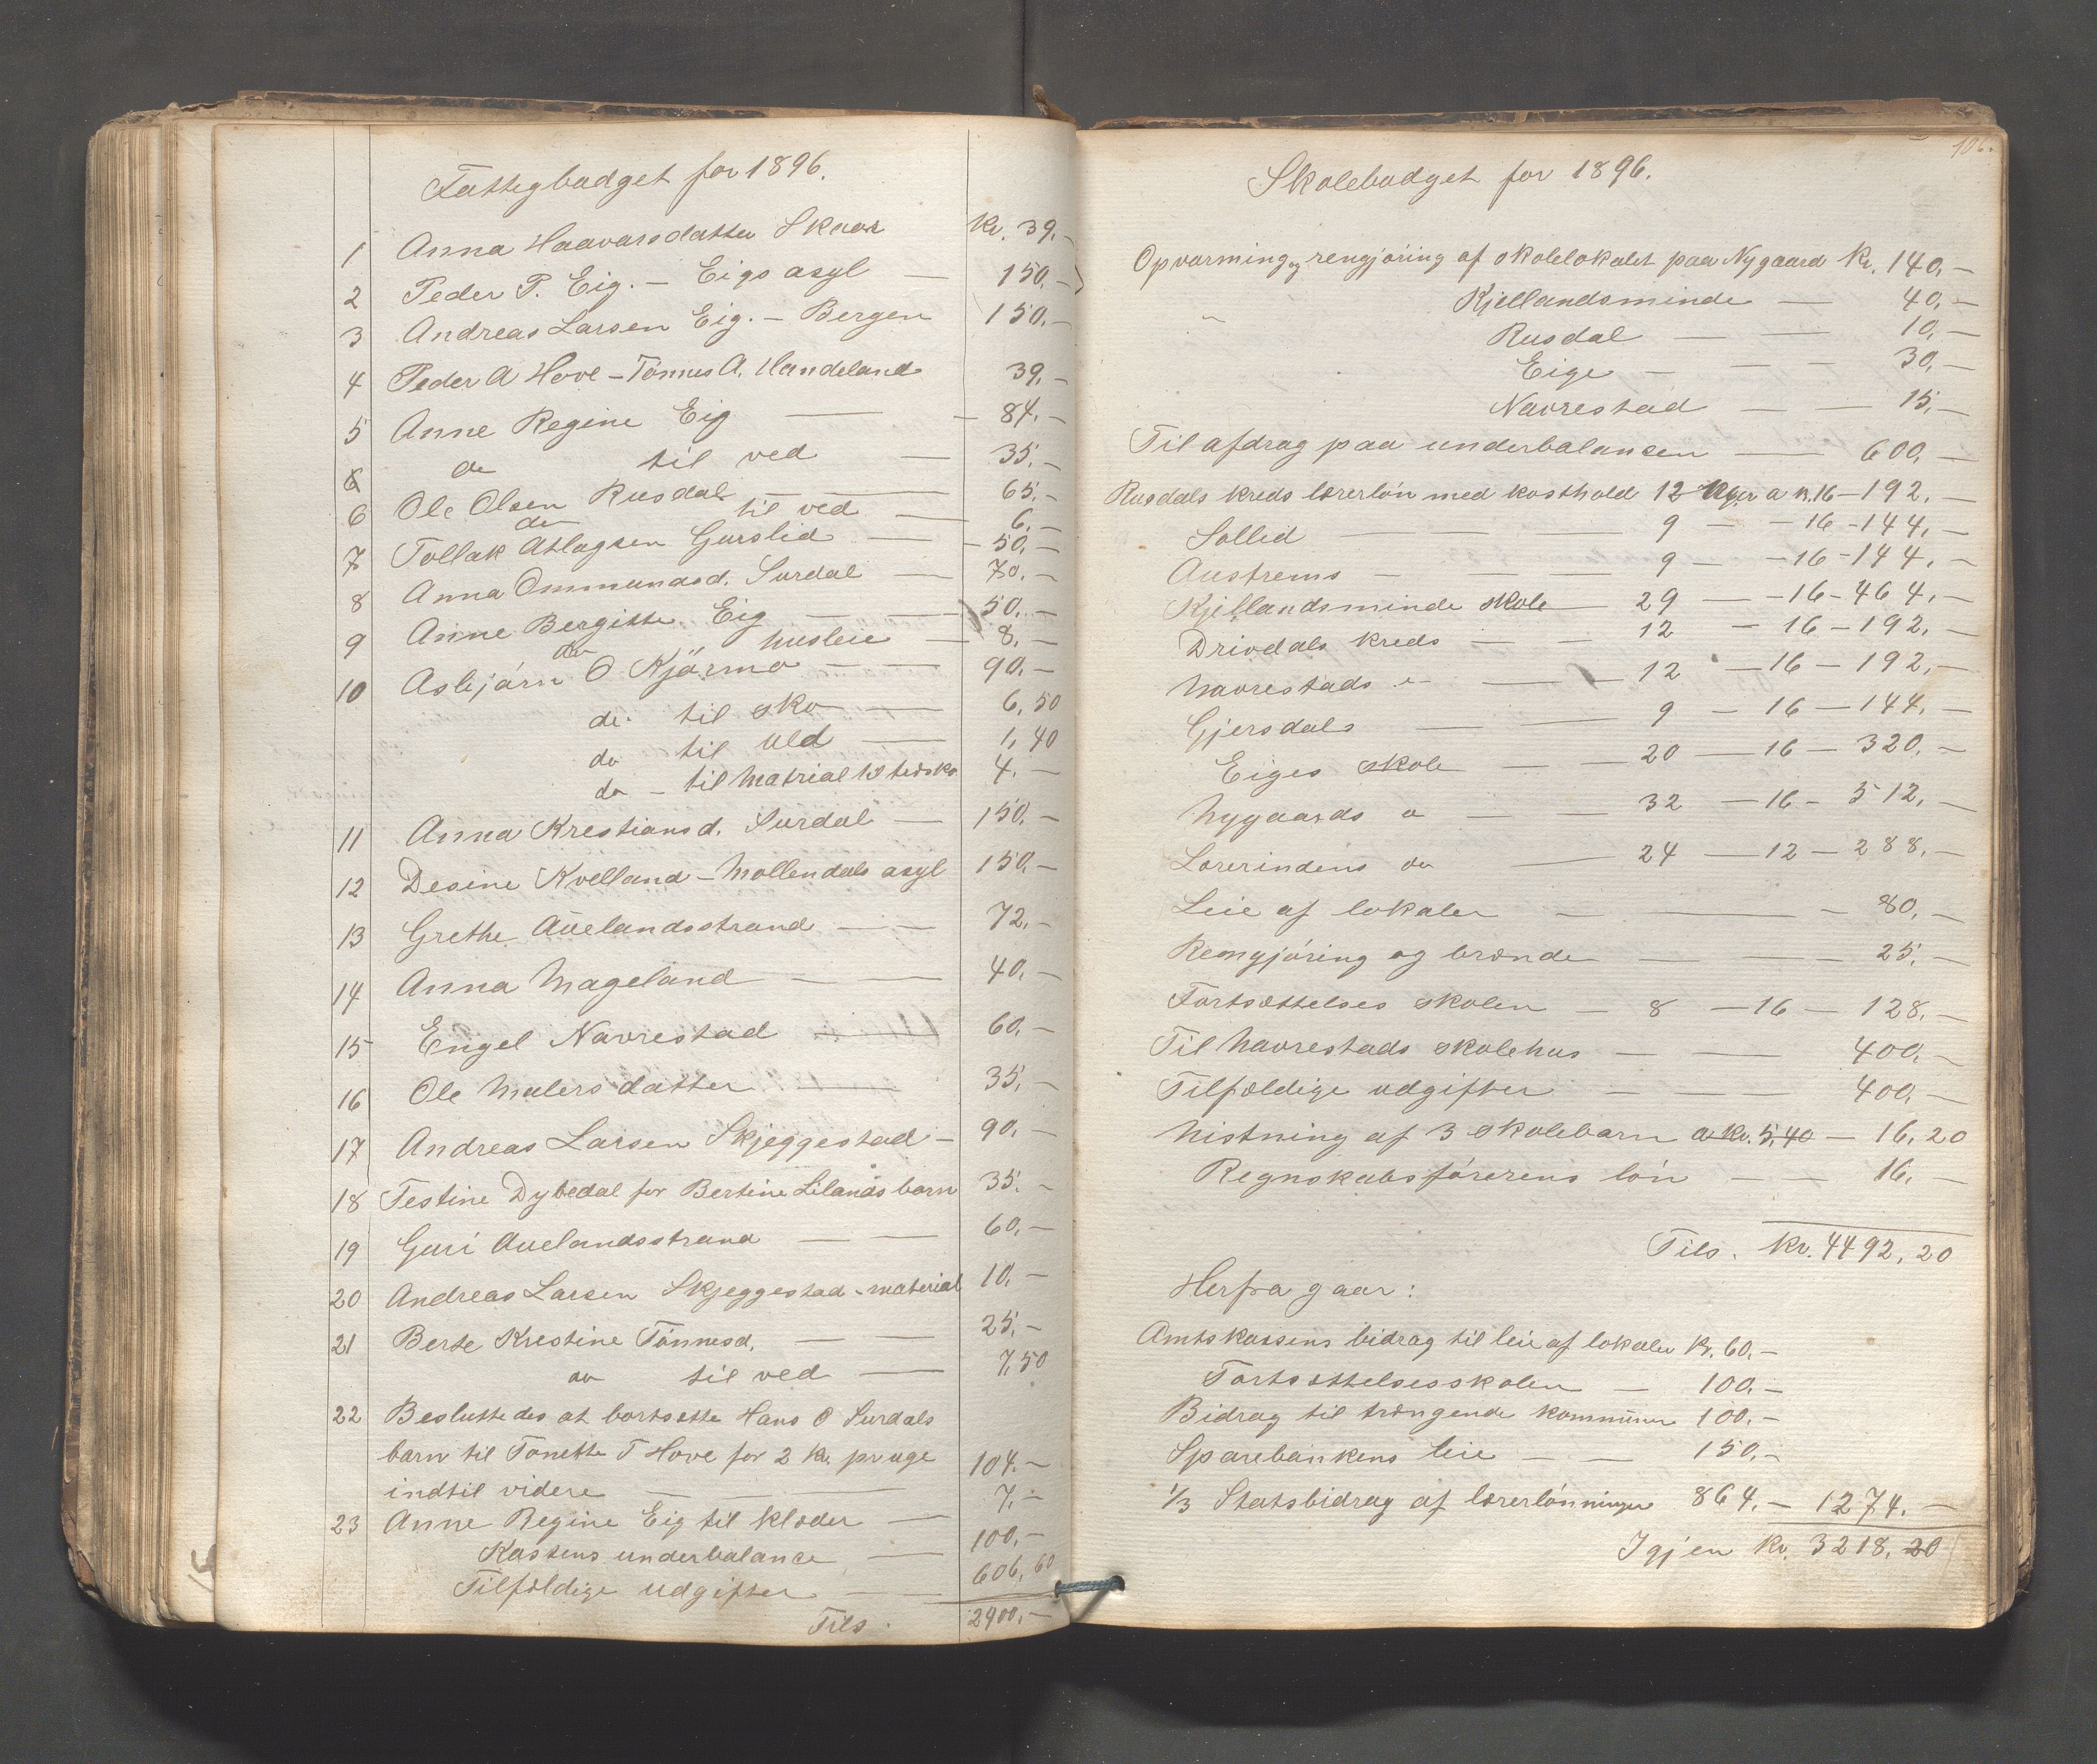 Fattigbudget for 1896.
1 Anna Haavarsdatter Skaar Kr. 39.-
2 Peder P. Eig. - Eigs asyl — 150.-
3 Andreas Larsen Eig. - Bergen 150.-
4 Peder A Hove - Tønnes A. Handeland 39.-
5 Anne Regine Eig — 84.-
do til ved — 35.-
6 Ole Olsen Rusdal — 65.-
do til ved — 6.-
7 Tollak Atlagsen Gurslid — 50.-
8 Anna Ommundsd. Surdal — 70.-
9 Anne Bergitte Eig — 50.-
do husleie — 8.-
10 Asbjørn O Kjørmo — 90.-
do til sko — 6,50
do til uld — 1,40
do - til matrial til træsko 4.-
11 Anna Krestiansd. Surdal — 150.-
12 Desine Kvelland - Møllendals asyl 150.-
13 Grethe Auelandsstrand — 72.-
14 Anna Mageland — 40.-
15 Engel Navrestad — 60.-
16 Ole Malersdatter — 35.-
17 Andreas Larsen Skjeggestad - 90.-
18 Testine Dybedal for Bertine Lilands barn 35.-
19 Guri Auelandsstrand — 60.-
20 Andreas Larsen Skjeggestad - material 10.-
21 Berte Krestine Tønnesd. — 25.-
do til ved — 7,50
22 Besluttedes at bortsætte Hans O Surdals
barn til Tonette T Hove for 2 Kr. pr uge
indtil videre — 104.-
23 Anne Regine Eig til klæder — 7.-
Kassens underbalance — 100.-
Tilfældige udgifter — 606,60
Tils. 2400.-
106.
Skolebudget for 1896.
Opvarming og rengjøring af skolelokalet paa Nygaard Kr. 140.-
" Kjellandsminde — 40.-
Rusdal — 10.-
Eige — 30.-
Navrestad — 15.-
Til afdrag paa underbalancen — 600.-
Rusdals kreds lærerløn med kosthold 12 uger a Kr. 16 - 192.-
Sollid — 9 - 16 - 144.-
Austrems — 9 - 16 - 144.-
Kjellandsminde skole — 29 - 16 - 464.-
Drivdals kreds — 12 - 16 - 192.-
Navrestads " — 12 - 16 - 192.-
Gjersdals — 9 - 16 - 144.-
Eiges skole — 20 - 16 - 320.-
Nygaards do — 32 - 16 - 512.-
Lærerindens do — 24 - 12 - 288.-
Leie af lokaler — 80.-
Rengjøring og brænde — 25.-
Fortsættelses skolen - 8 - 16 - 128.-
Til Navrestads skolehus — 400.-
Tilfældige udgifter — 400.-
Nistning af 3 skolebarn a Kr. 5,40 - 16,20
Regnskabsførerens løn — 16.-
Tils. Kr. 4492,20
Herfra gaar:
Amtskassens bidrag til leie af lokaler Kr. 60.-
Fortsættelsesskolen — 100.-
Bidrag til trængende kommuner 100.-
Sparebankens leie — 150.-
1/3 Statsbidrag af lærerlønninger 864.- 1274.-
Igjen Kr. 3218,20